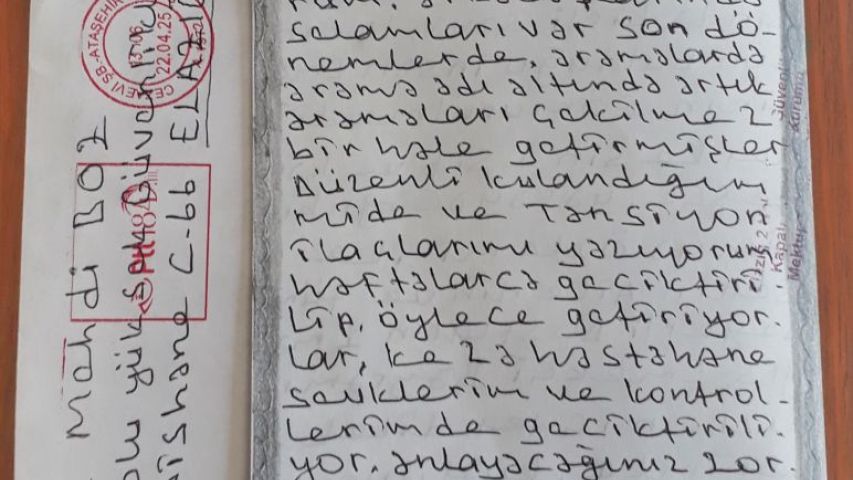 selamları var son dö-
nemlerde, aramalarda
arama adı altında artık
aramaları çekilmez
bir hale getirmişler
Düzenli kulandığım
mide ve Tansiyon
ilaçlarımı yazıyorum
haftalarca geciktiri
lip, öylece getiriyor.
lar, keza hastahane
sevklerim ve kontrol-
lerimde geciktirili.
yor. anlayacağınız zor.
Mehdi BOZ
yüksek Güvenlikli
C-66 ELAZIĞ
ŞB.-ATAŞEHİR
22.04.25
Güvenli
Kurumu
Kapalı
Mektup